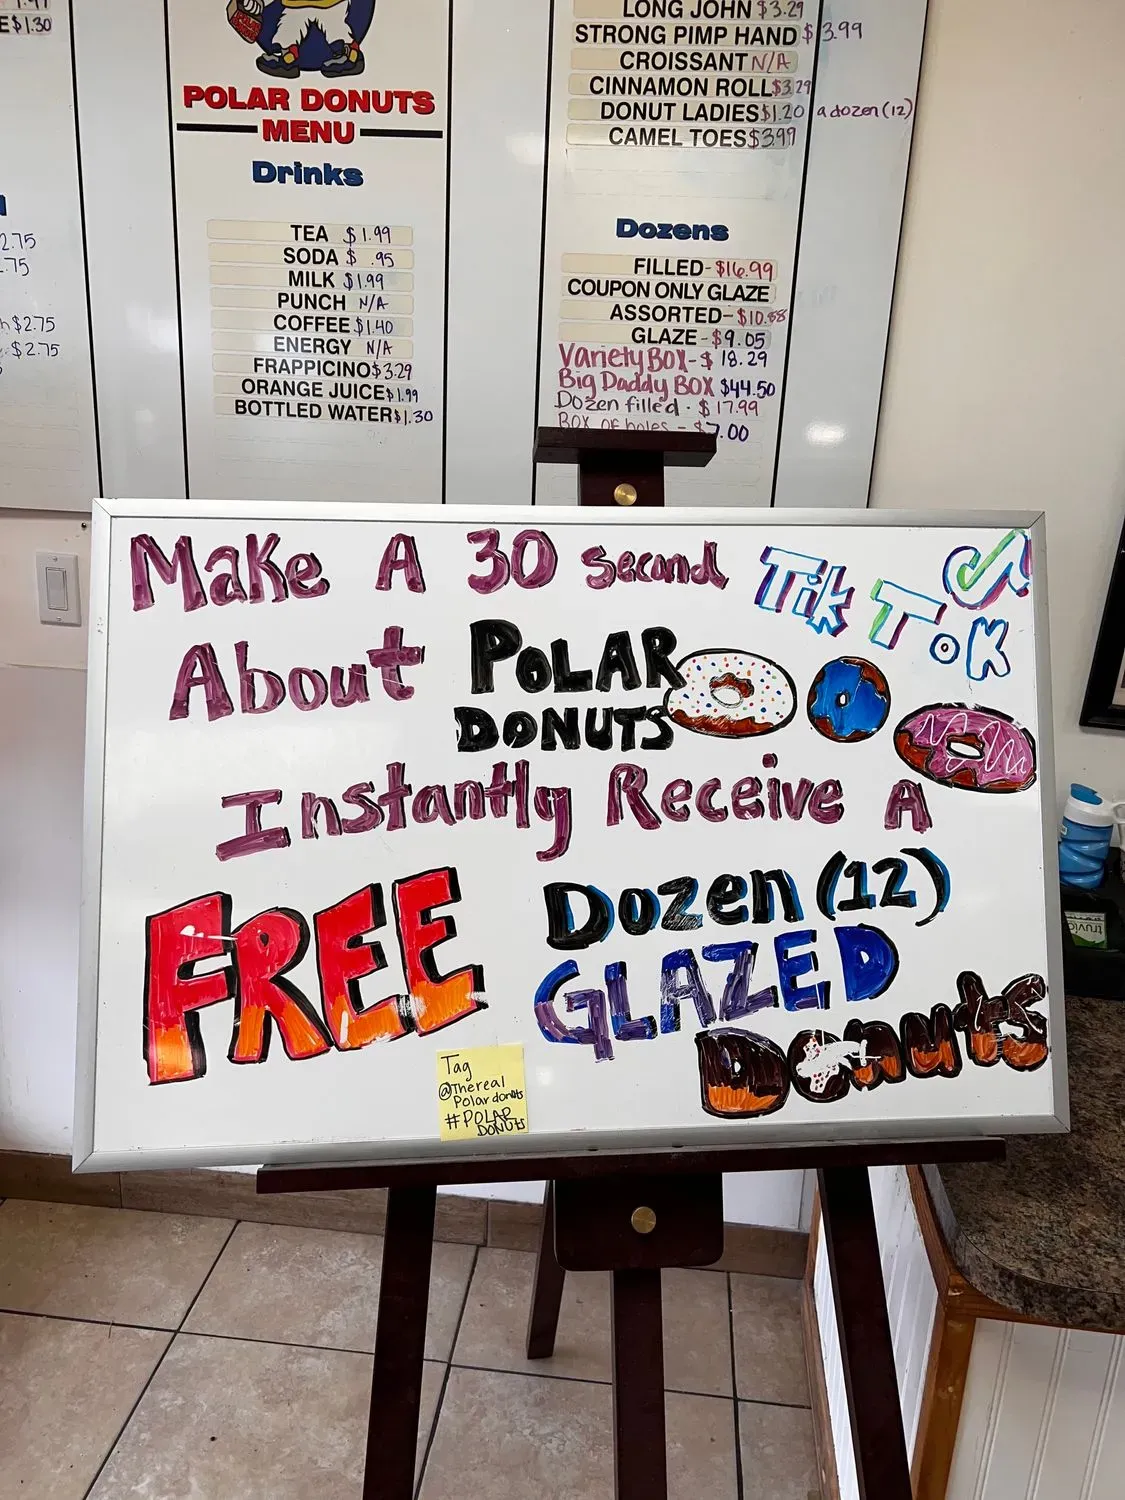 E $1.30
2.75
.75
$2.75
$2.75
POLAR DONUTS
MENU
Drinks
TEA $1.99
SODA $ .95
MILK $1.99
PUNCH N/A
COFFEE $1.40
ENERGY N/A
FRAPPICINO $3.29
ORANGE JUICE $1.99
BOTTLED WATER $1.30
LONG JOHN $3.29
STRONG PIMP HAND $3.99
CROISSANT N/A
CINNAMON ROLL $3.29
DONUT LADIES $1.20 a dozen (12)
CAMEL TOES $3.99
Dozens
FILLED- $16.99
COUPON ONLY GLAZE
ASSORTED- $10.58
GLAZE- $9.05
Variety Box- $18.29
Big Daddy BOX $44.50
Dozen filled - $17.99
Box of holes - $7.00
Make A 30 second Tik Tok
About POLAR
DONUTS
Instantly Receive A
FREE Dozen (12)
GLAZED
Donuts
Tag
@Thereal
Polardonuts
#POLAR
DONUTS
truvia